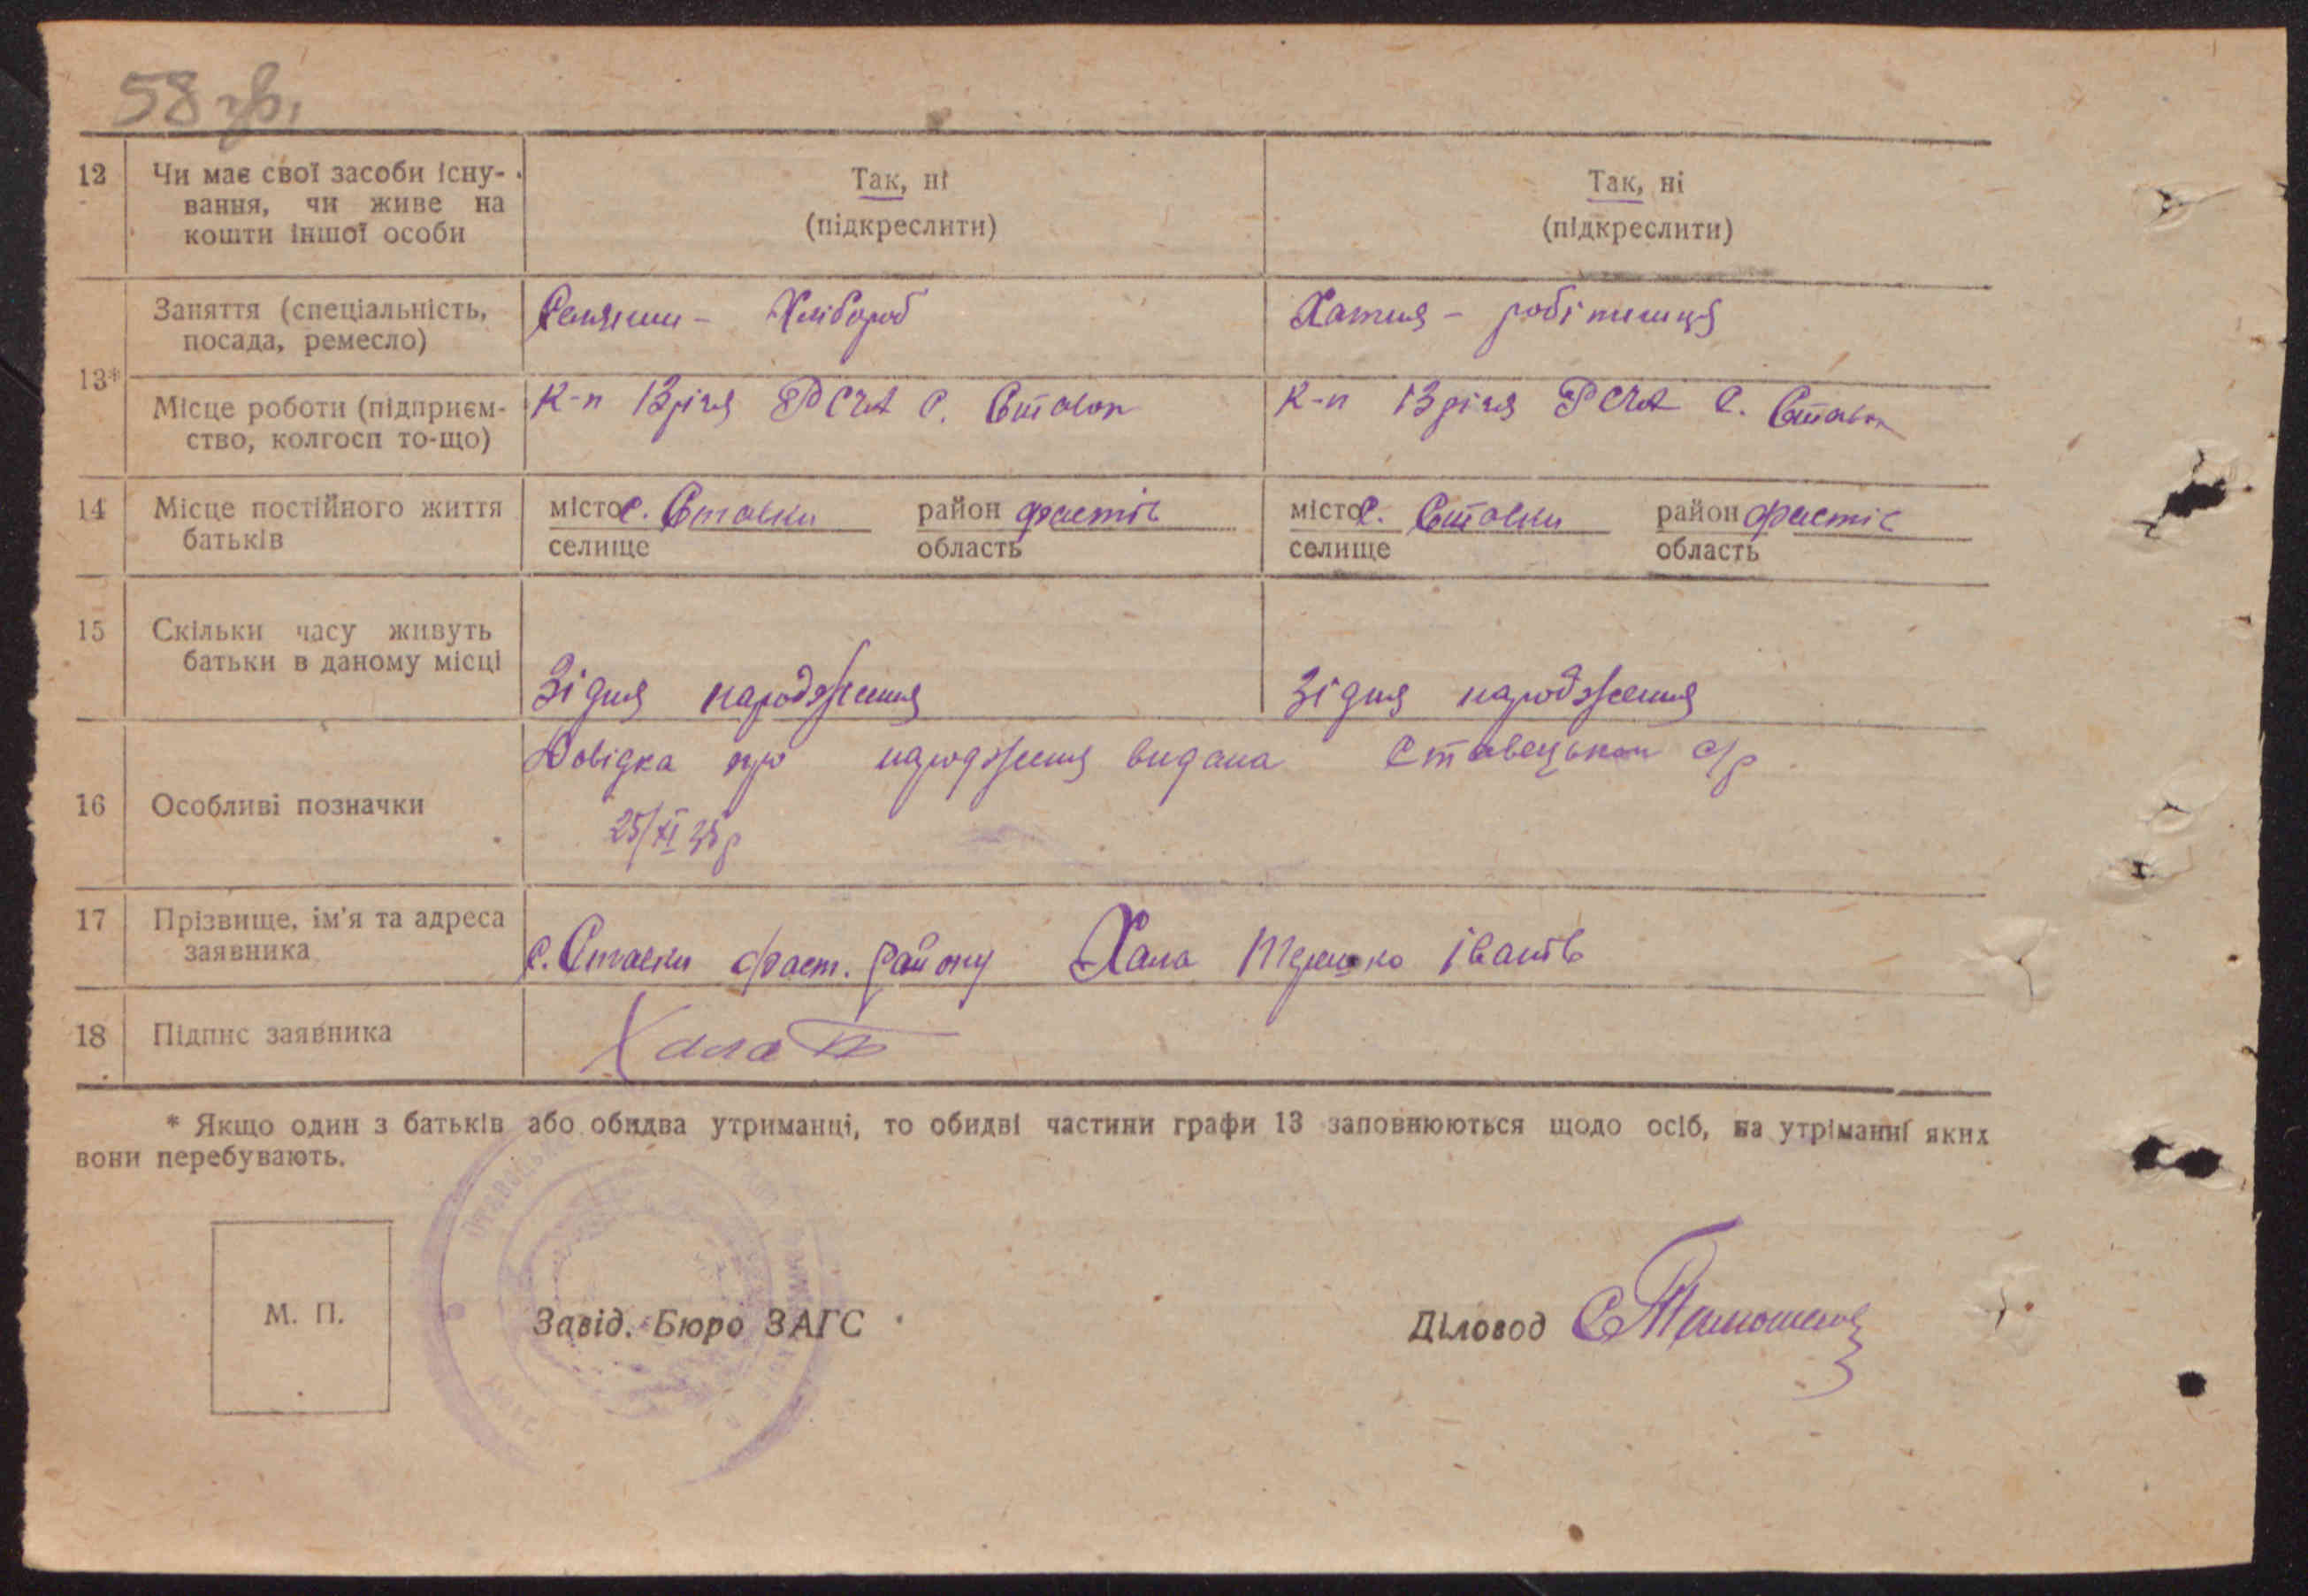 58 зв.
12 Чи має свої засоби існу- Так, ні Так, ні
вання, чи живе на (підкреслити) (підкреслити)
кошти іншої особи
Заняття (спеціальність, Селянин - Хлібороб Хатня - робітниця
посада, ремесло)
13*
Місце роботи (підприєм- К-п 13 річя РСЧА с. Ставок К-п 13 річя РСЧА с. Ставок
ство, колгосп то-що)
14 Місце постійного життя місто с. Ставки район Фастів місто с. Ставки район Фастів
батьків селище область селище область
15 Скільки часу живуть
батьки в даному місці Зі дня народження Зі дня народження
Довідка про народження видана Ставецькою с/р
16 Особливі позначки
25/XI 35 р
17 Прізвище, ім'я та адреса
заявника с. Ставки Фаст. району Хала Терешко Іванів
18 Підпис заявника Хала Т
* Якщо один з батьків або обидва утриманці, то обидві частини графи 13 заповнюються щодо осіб, на утріманні яких
вони перебувають.
М. П. Завід. Бюро ЗАГС Діловод С Тимошенко